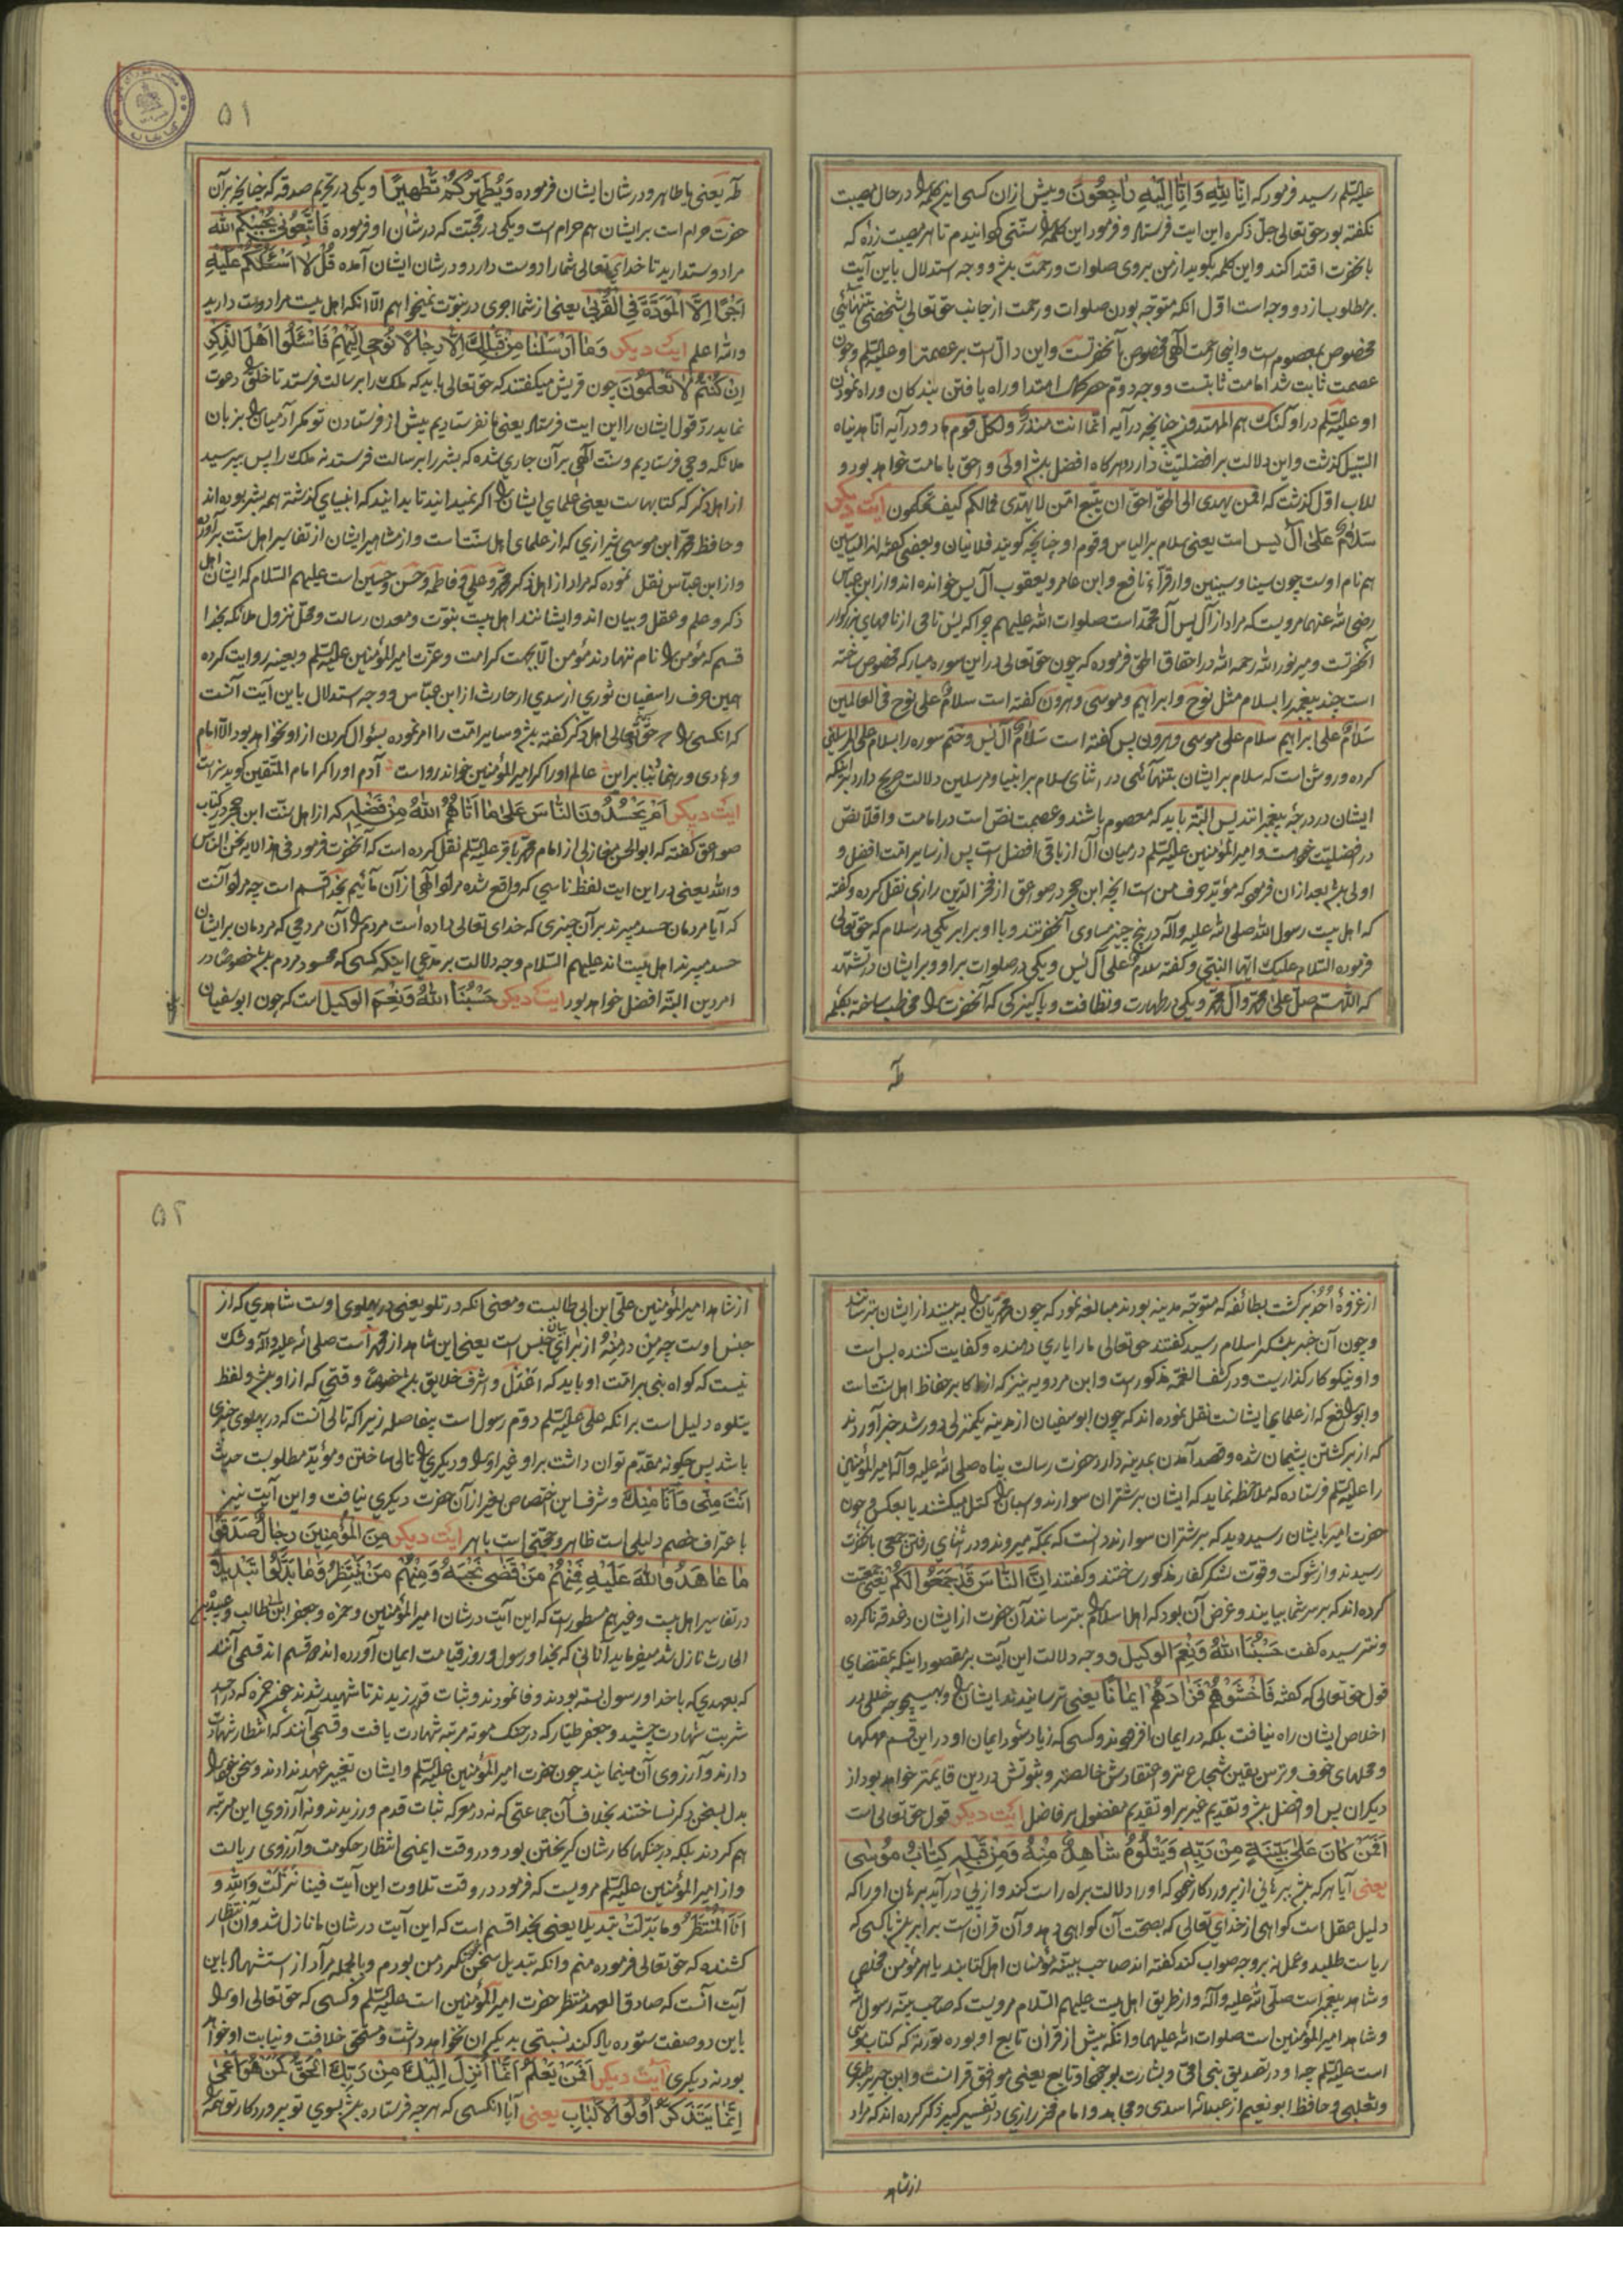 علیه السلم رسید فرمود که اِنّا لِلّهِ وَاِنّا اِلَیْهِ راجِعُونَ و پیش از ان کسی این کلمه را در حال مصیبت
نکفته بود حق تعالی جل ذکره این ایت فرستاد و فرمود این کلمه را سنتی کردانیدم تا هر مصیبت زده که
بانحضرت اقتدا کند و این کلمه بکوید از من بر وی صلوات و رحمت باشد و وجه استدلال باین آیت
بر مطلوب از دو وجه است اوّل انکه متوجه بودن صلوات و رحمت از جانب حق تعالی بشخصی بتنهائی
مخصوص بمعصوم است و انبیا رحمت الهی مخصوص آنحضرتست و این دالست بر عصمت او علیه السلم و چون
عصمت ثابت شد امامت ثابتست و وجه دوّم حصر کمال اهتدا و راه یافتن بندکان و راه نمودن
او علیه السلم در اولئک هم المهتدون چنانچه در آیه انما انت منذر ولکل قوم هاد و در آیه انا هدیناه
السبیل کذشت و این دلالت بر افضلیت دارد و هر کاه افضل باشد اولی و احق بامامت خواهد بود و
للاب اوّل کذشت که افمن یهدی الی الحق احق ان یتبع امّن لا یهدّی فمالکم کیف تحکمون ایت دیکر
سَلامٌ عَلی آل یس است یعنی سلام بر الیاس و قوم او چنانچه کویند فلانیان و بعضی کفته اند الیاسین
هم نام اوست چون سینا و سینین و از قرآء نافع و ابن عامر و یعقوب آل یس خوانده اند و از ابن عباس
رضی الله عنهما مرویست که مراد از آل یس آل محمد است صلوات الله علیهم چرا که یس نامی از نامهای بزرکوار
آنحضرتست و میر نورالله رحمه الله در احقاق الحق فرموده که چون حق تعالی در این سوره مبارکه مخصوص ساخته
است چند پیغمبر را بسلام مثل نوح و ابراهیم و موسی و هرون کفته است سلامٌ علی نوح فی العالمین
سَلامٌ علی ابراهیم سلام علی موسی و هرون پس کفته است سَلامٌ علی آل یس و ختم سوره را بسلام علی المرسلین
کرده و روشن است که سلام بر ایشان بتنهائی در اثنای سلام بر انبیا و مرسلین دلالت صریح دارد بر اینکه
ایشان در درجه پیغمبرانند پس البته باید که معصوم باشند و عصمت نص است در امامت و اقلاً نص
در افضلیت خواهد بود و امیر المؤمنین علیه السلم در میان آل از باقی افضل است پس از سایر امت افضل و
اولی باشد بعد از ان فرموده که مؤید حرف من است انچه ابن حجر در صواعق از فخر الدین رازی نقل کرده و کفته
که اهل بیت رسول الله صلی الله علیه و آله در پنج چیز مساوی آنحضرتند و با او برابر یکی در سلام که حق تعالی
فرموده السلام علیک ایها النبی و کفته سلام علی آل یس و یکی در صلوات بر او و بر ایشان در تشهد
که اللهم صل علی محمد و آل محمد و یکی در طهارت و نظافت و پاکیزکی که آنحضرت را مخاطب ساخته بکلمه
طه
۵۱
طه یعنی یا طاهر و در شان ایشان فرموده وَیُطَهِّرَکُمْ تَطْهیراً و یکی در تحریم صدقه که چنانچه بر آن
حضرت حرام است بر ایشان هم حرام است و یکی در محبت که در شان او فرموده فَاتَّبِعُونی یُحْبِبْکُمُ الله
مرا دوست دارید تا خدای تعالی شما را دوست دارد و در شان ایشان آمده قُلْ لا اَسْئَلُکُمْ عَلَیْهِ
اَجْراً اِلَّا الْمَوَدَّةَ فِی الْقُرْبی یعنی از شما اجری در نبوّت نمیخواهم الا انکه اهل بیت مرا دوست دارید
والله اعلم ایت دیکر وَما اَرْسَلْنا مِنْ قَبْلِکَ اِلّا رِجالاً نُوحی اِلَیْهِمْ فَاسْئَلُوا اَهْلَ الذِّکْرِ
اِنْ کُنْتُمْ لا تَعْلَمُونَ چون قریش میکفتند که حق تعالی باید که ملک را برسالت فرستد تا خلق را دعوت
نماید ردّ قول ایشان را این ایت فرستاد یعنی ما نفرستادیم پیش از فرستادن تو مکر آدمیان را بزبان
ملائکه وحی فرستادیم و سنت الهی بر آن جاری شده که بشر را برسالت فرستد نه ملک را پس بپرسید
از اهل ذکر که کتابهاست یعنی علمای ایشان را اکر نمیدانید تا بدانید که انبیای کذشته همه بشر بوده اند
و حافظ محمد ابن موسی شیرازی که از علمای اهل سنت است و از مشاهیر ایشان از تفاسیر اهل سنت بر آورده
و از ابن عباس نقل نموده که مراد از اهل ذکر محمد و علی و فاطمه و حسن و حسین است علیهم السلام که ایشان اهل
ذکر و علم و عقل و بیان اند و ایشانند اهل بیت نبوّت و معدن رسالت و محلّ نزول ملائکه بخدا
قسم که مؤمن را نام ننهادند مؤمن الا بجهت کرامت و عزّت امیر المؤمنین علیه السلم و بعینه روایت کرده
همین حرف را سفیان ثوری از سدی از حارث از ابن عباس و وجه استدلال باین آیت آنست
که انکسی را که حق تعالی اهل ذکر کفته باشد و سایر امت را امر نموده بسئوال کردن از او نخواهد بود الا امام
و هادی و رهنما بنابراین عالم او را اکر امیر المؤمنین خواند رواست آدم او را اکر امام المتقین کوید سزاست
ایت دیکر اَمْ یَحْسُدُونَ النّاسَ عَلی ما آتاهُمُ اللهُ مِنْ فَضْلِهِ که از اهل سنت ابن حجر در کتاب
صواعق کفته که ابوالحسن مغازلی از امام محمد باقر علیه السلم نقل کرده است که آنحضرت فرمود فی هذا الایه نحن الناس
والله یعنی در این ایت لفظ ناسی که واقع شده مراد الهی از آن مائیم بخدا قسم است چه مراد آنست
که آیا مردمان حسد میبرند بر آن چیزی که خدای تعالی داده است مردم را آن مردمی که مردمان بر ایشان
حسد میبرند اهل بیت اند علیهم السلام وجه دلالت بر مدعی اینکه کسی که محسود مردم باشد خصوصاً در
امر دین البته افضل خواهد بود ایت دیکر حَسْبُنَا اللهُ وَنِعْمَ الوکیل است که چون ابو سفیان
از غزوهٔ اُحُد برکشت بطائفه که متوجه مدینه بودند مبالغه نمود که چون محمدیان را به بینند از ایشان بترسانند
و چون آن خبر بلشکر اسلام رسید کفتند حق تعالی ما را یاری دهنده و کفایت کننده بس است
و او نیکو کارکذاریست و در کشف الغمه مذکور است و ابن مردویه نیز که از اکابر حفاظ اهل سنت است
و ابو رافع که از علمای ایشانست نقل نموده اند که چون ابو سفیان از مدینه یکمنزلی دور شد خبر آوردند
که از برکشتن پشیمان شده و قصد آمدن بمدینه دارد حضرت رسالت پناه صلی الله علیه و آله امیر المؤمنین
را علیه السلم فرستاده که ملاحظه نماید که ایشان بر شتران سوارند و اسبان را کتل میکشند یا بعکس و چون
حضرت امیر بایشان رسید دید که بر شتران سوارند دانست که بمکه میروند و در اثنای رفتن جمعی بانحضرت
رسیدند و از شوکت و قوّت لشکر کفار مذکور ساختند و کفتند اِنَّ النّاسَ قَدْ جَمَعُوا لَکُمْ یعنی جمعیت
کرده اند که بر سر شما بیایند و غرض آن بود که اهل اسلام را بترسانند آن حضرت از ایشان دغدغه ناکرده
و نترسیده کفت حَسْبُنَا اللهُ وَنِعْمَ الوکیل و وجه دلالت این آیت بر مقصود اینکه بمقتضای
قول حق تعالی که کفته فَاخْشَوْهُمْ فَزادَهُمْ ایماناً یعنی ترسانیدند ایشان را و بهیچوجه خللی در
اخلاص ایشان راه نیافت بلکه در ایمان افزودند و کسی که زیاد شود ایمان او در این قسم مهمها
و محلهای خوف و ترس یقین شجاع تر و اعتقادش خالصتر و ثبوتش در دین قایمتر خواهد بود از
دیکران پس او افضل باشد و تقدیم غیر بر او تقدیم مفضول بر فاضل ایت دیکر قول حق تعالی است
اَفَمَنْ کانَ عَلی بَیِّنَةٍ مِنْ رَبِّهِ وَیَتْلُوهُ شاهِدٌ مِنْهُ وَمِنْ قَبْلِهِ کِتابُ مُوسی
یعنی آیا هر که باشد بر برهانی از پروردکار خود که او را دلالت براه راست کند و از پی در آید برهان او را که
دلیل عقل است کواهی از خدای تعالی که بصحت آن کواهی دهد و آن قرآن است برابر باشد با کسی که
ریاست طلبد و عمل نه بر وجه صواب کند کفته اند صاحب بینه مؤمنان اهل کتابند یا هر مؤمن مخلص
و شاهد پیغمبر است صلی الله علیه و آله و از طریق اهل بیت علیهم السلام مرویست که صاحب بینه رسول الله
و شاهد امیر المؤمنین است صلوات الله علیهما و انکه پیش از قرآن تابع او بوده توریة که کتاب موسی
است علیه السلم چه او در تصدیق نبی امی و بشارت بوجود او تابع یعنی موافق قرآنست و ابن جریر طبری
و ثعلبی و حافظ ابو نعیم از عبدالله اسدی و مجاهد و امام فخر رازی در تفسیر کبیر ذکر کرده اند که مراد
از شاهد
۵۲
از شاهد امیر المؤمنین علی ابن ابی طالبست و معنی انکه در تلو یعنی در پهلوی اوست شاهدی که از
جنس اوست چه مِن در مِنْهُ از برای بیان جنس است یعنی این شاهد از محمد است صلی الله علیه و آله و شک
نیست که کواه نبی بر امت او باید که اعدل و اشرف خلایق باشد خصوصاً وقتی که از او باشد و لفظ
یتلوه دلیل است بر انکه علی علیه السلم دوّم رسول است بیفاصله زیرا که تالی آنست که در پهلوی چیزی
باشد پس چکونه مقدّم توان داشت بر او غیر او را و دیکری را تالی ساختن و مؤید مطلوبست حدیث
اَنْتَ مِنّی وَاَنَا مِنْکَ و شرف این اختصاص بغیر از آن حضرت دیکری نیافت و این آیت نیز
باعتراف خصم دلیلی است ظاهر و حجتی است باهر ایت دیکر مِنَ الْمُؤْمِنینَ رِجالٌ صَدَقُوا
ما عاهَدُوا اللهَ عَلَیْهِ فَمِنْهُمْ مَنْ قَضی نَحْبَهُ وَمِنْهُمْ مَنْ یَنْتَظِرُ وَما بَدَّلُوا تَبْدیلاً
در تفاسیر اهل بیت و غیرهم مسطور است که این آیت در شان امیر المؤمنین و حمزه و جعفر ابن ابی طالب و عبیده بن
الحارث نازل شد میفرماید آنانی که بخدا و رسول و روز قیامت ایمان آورده اند دو قسم اند قسمی آنند
که بعهدی که با خدا و رسول بسته بودند وفا نمودند و ثبات قدم ورزیدند تا شهید شدند چون حمزه که در احد
شربت شهادت چشید و جعفر طیار که در جنک موته مرتبه شهادت یافت و قسمی آنند که انتظار شهادت
دارند و آرزوی آن مینمایند چون حضرت امیر المؤمنین علیه السلم و ایشان تغییر عهد ندادند و سخن خود را
بدل بسخن دیکر نساختند بخلاف آن جماعتی که نه در معرکه ثبات قدم ورزیدند و نه آرزوی این مرتبه
هم کردند بلکه در جنکها کارشان کریختن بود و در وقت ایمنی انتظار حکومت و آرزوی ریاست
و از امیر المؤمنین علیه السلم مرویست که فرمود در وقت تلاوت این آیت فینا نزلت والله و
اَنَا الْمُنْتَظِرُ وما بدّلت تبدیلا یعنی بخدا قسم است که این آیت در شان ما نازل شد و آن انتظار
کشنده که حق تعالی فرموده منم و انکه تبدیل سخن نکرد من بودم و بالجمله مراد از استشهاد باین
آیت آنست که صادق العهد منتظر حضرت امیر المؤمنین است علیه السلم و کسی که حق تعالی او را
باین دو صفت ستوده یاد کند نسبتی بدیکران نخواهد داشت و مستحق خلافت و نیابت او خواهد
بود نه دیکری آیت دیکر اَفَمَنْ یَعْلَمُ اَنَّما اُنْزِلَ اِلَیْکَ مِنْ رَبِّکَ الْحَقُّ کَمَنْ هُوَ اَعْمی
اِنَّما یَتَذَکَّرُ اُولُوا الْاَلْبابِ یعنی آیا انکسی که هر چه فرستاده باشد بسوی تو پروردکار تو همه را